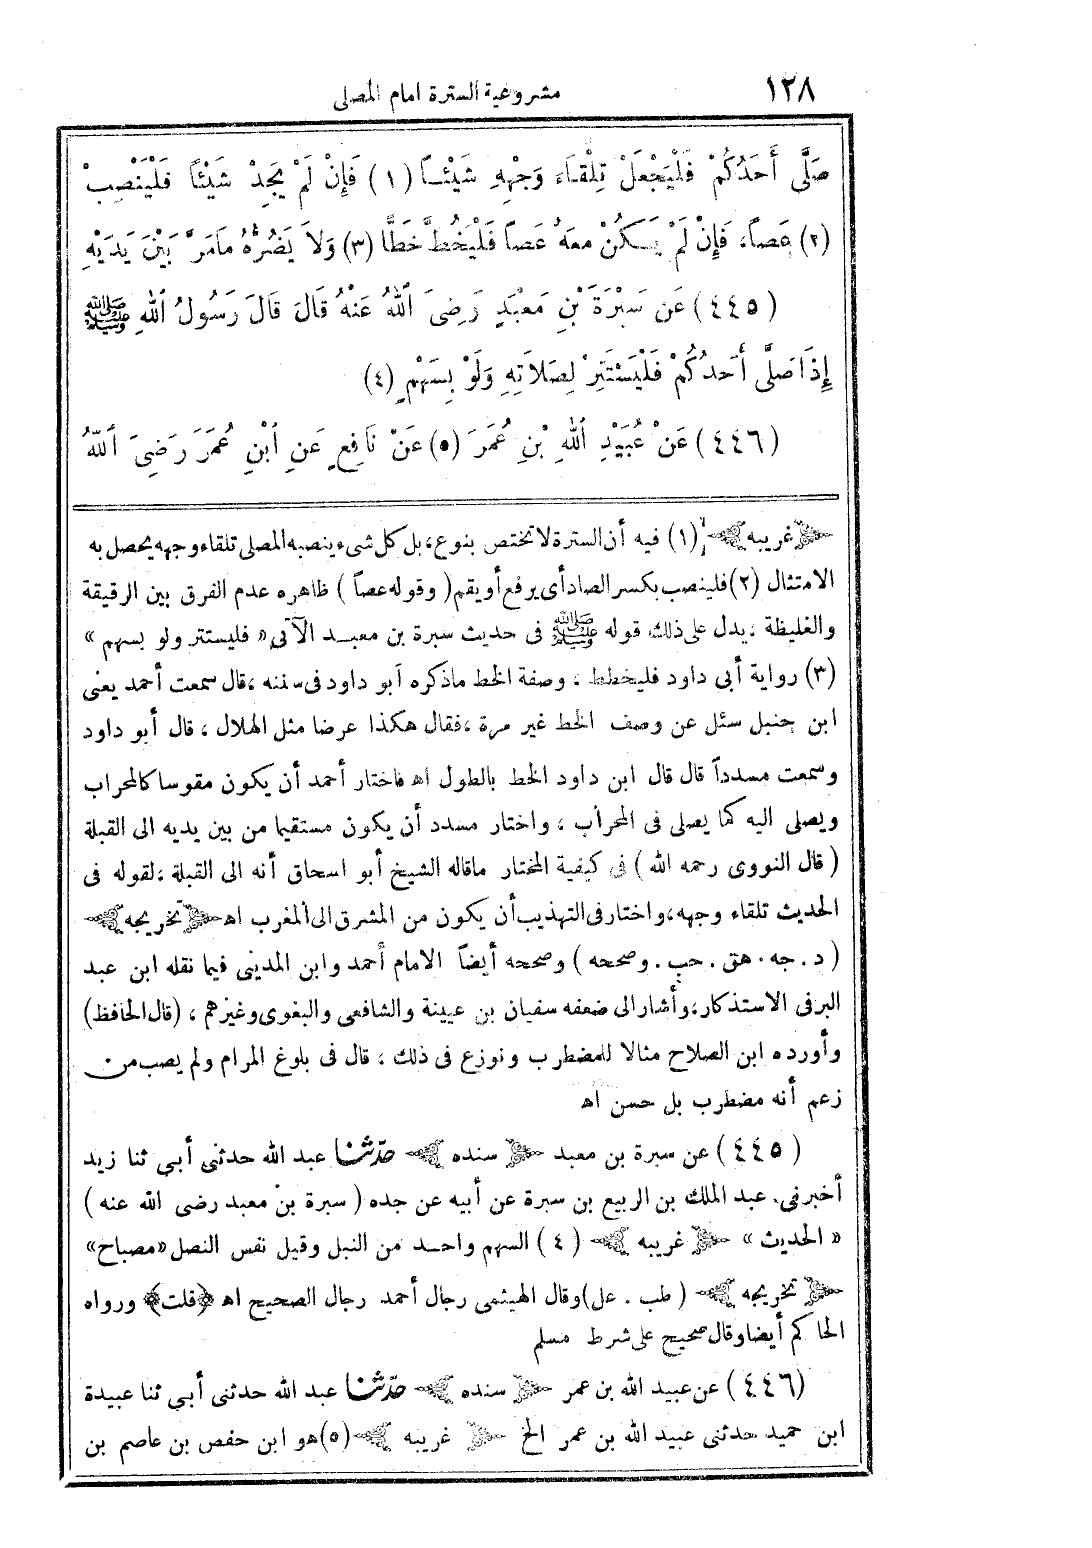 ١٢٨ مشروعية السترة امام المصلى
صَلَّى أَحَدُكُمْ فَلْيَجْعَلْ تِلْقَاءَ وَجْهِهِ شَيْئًا (١) فَإِنْ لَمْ يَجِدْ شَيْئًا فَلْيَنْصِبْ
(٢) عَصاً، فَإِنْ لَمْ يَكُنْ مَعَهُ عَصاً فَلْيَخُطَّ خَطًّا (٣) وَلاَ يَضُرُّهُ مَامَرَّ بَيْنَ يَدَيْهِ
(٤٤٥) عَن سَبْرَةَ بْنِ مَعْبَدٍ رَضِىَ اللهُ عَنْهُ قَالَ قَالَ رَسُولُ اللهِ ﷺ
إِذَا صَلَّى أَحَدُكُمْ فَلْيَسْتَتِرْ لِصَلاَتِهِ وَلَوْ بِسَهْمٍ (٤)
(٤٤٦) عَنْ عُبَيْدِ اللهِ بْنِ عُمَرَ (٥) عَنْ نَافِعٍ عَنِ ابْنِ عُمَرَ رَضِىَ اللهُ
﴿غريبه﴾ (١) فيه أن السترة لا تختص بنوع، بل كل شىء ينصبه المصلى تلقاء وجهه يحصل به
الامتثال (٢) فلينصب بكسر الصاد أى يرفع أو يقم (وقوله عصاً) ظاهره عدم الفرق بين الرقيقة
والغليظة، يدل على ذلك قوله ﷺ فى حديث سبرة بن معبد الآتى «فليستتر ولو بسهم»
(٣) رواية أبى داود فليخطط، وصفة الخط ماذكره أبو داود فى سننه، قال سمعت أحمد يعنى
ابن حنبل سئل عن وصف الخط غير مرة، فقال هكذا عرضا مثل الهلال، قال أبو داود
وسمعت مسدداً قال قال ابن داود الخط بالطول اه فاختار أحمد أن يكون مقوسا كالمحراب
ويصلى اليه كما يصلى فى المحراب، واختار مسدد أن يكون مستقيما من بين يديه الى القبلة
(قال النووى رحمه الله) فى كيفية المختار ماقاله الشيخ أبو اسحاق أنه الى القبلة، لقوله فى
الحديث تلقاء وجهه، واختار فى التهذيب أن يكون من المشرق الى المغرب اه ﴿تخريجه﴾
(د. جه. هق. حب. وصححه) وصححه أيضاً الامام أحمد وابن المدينى فيما نقله ابن عبد
البر فى الاستذكار، وأشار الى ضعفه سفيان بن عيينة والشافعى والبغوى وغيرهم، (قال الحافظ)
وأورده ابن الصلاح مثالا للمضطرب ونوزع فى ذلك، قال فى بلوغ المرام ولم يصب من
زعم أنه مضطرب بل حسن اه
(٤٤٥) عن سبرة بن معبد ﴿سنده﴾ حدّثنا عبد الله حدثنى أبى ثنا زيد
أخبرنى عبد الملك بن الربيع بن سبرة عن أبيه عن جده (سبرة بن معبد رضى الله عنه)
«الحديث» ﴿غريبه﴾ (٤) السهم واحد من النبل وقيل نفس النصل «مصباح»
﴿تخريجه﴾ (طب. عل) وقال الهيثمى رجال أحمد رجال الصحيح اه ﴿قلت﴾ ورواه
الحاكم أيضا وقال صحيح على شرط مسلم
(٤٤٦) عن عبيد الله بن عمر ﴿سنده﴾ حدّثنا عبد الله حدثنى أبى ثنا عبيدة
ابن حميد حدثنى عبيد الله بن عمر الخ ﴿غريبه﴾ (٥) هو ابن حفص بن عاصم بن